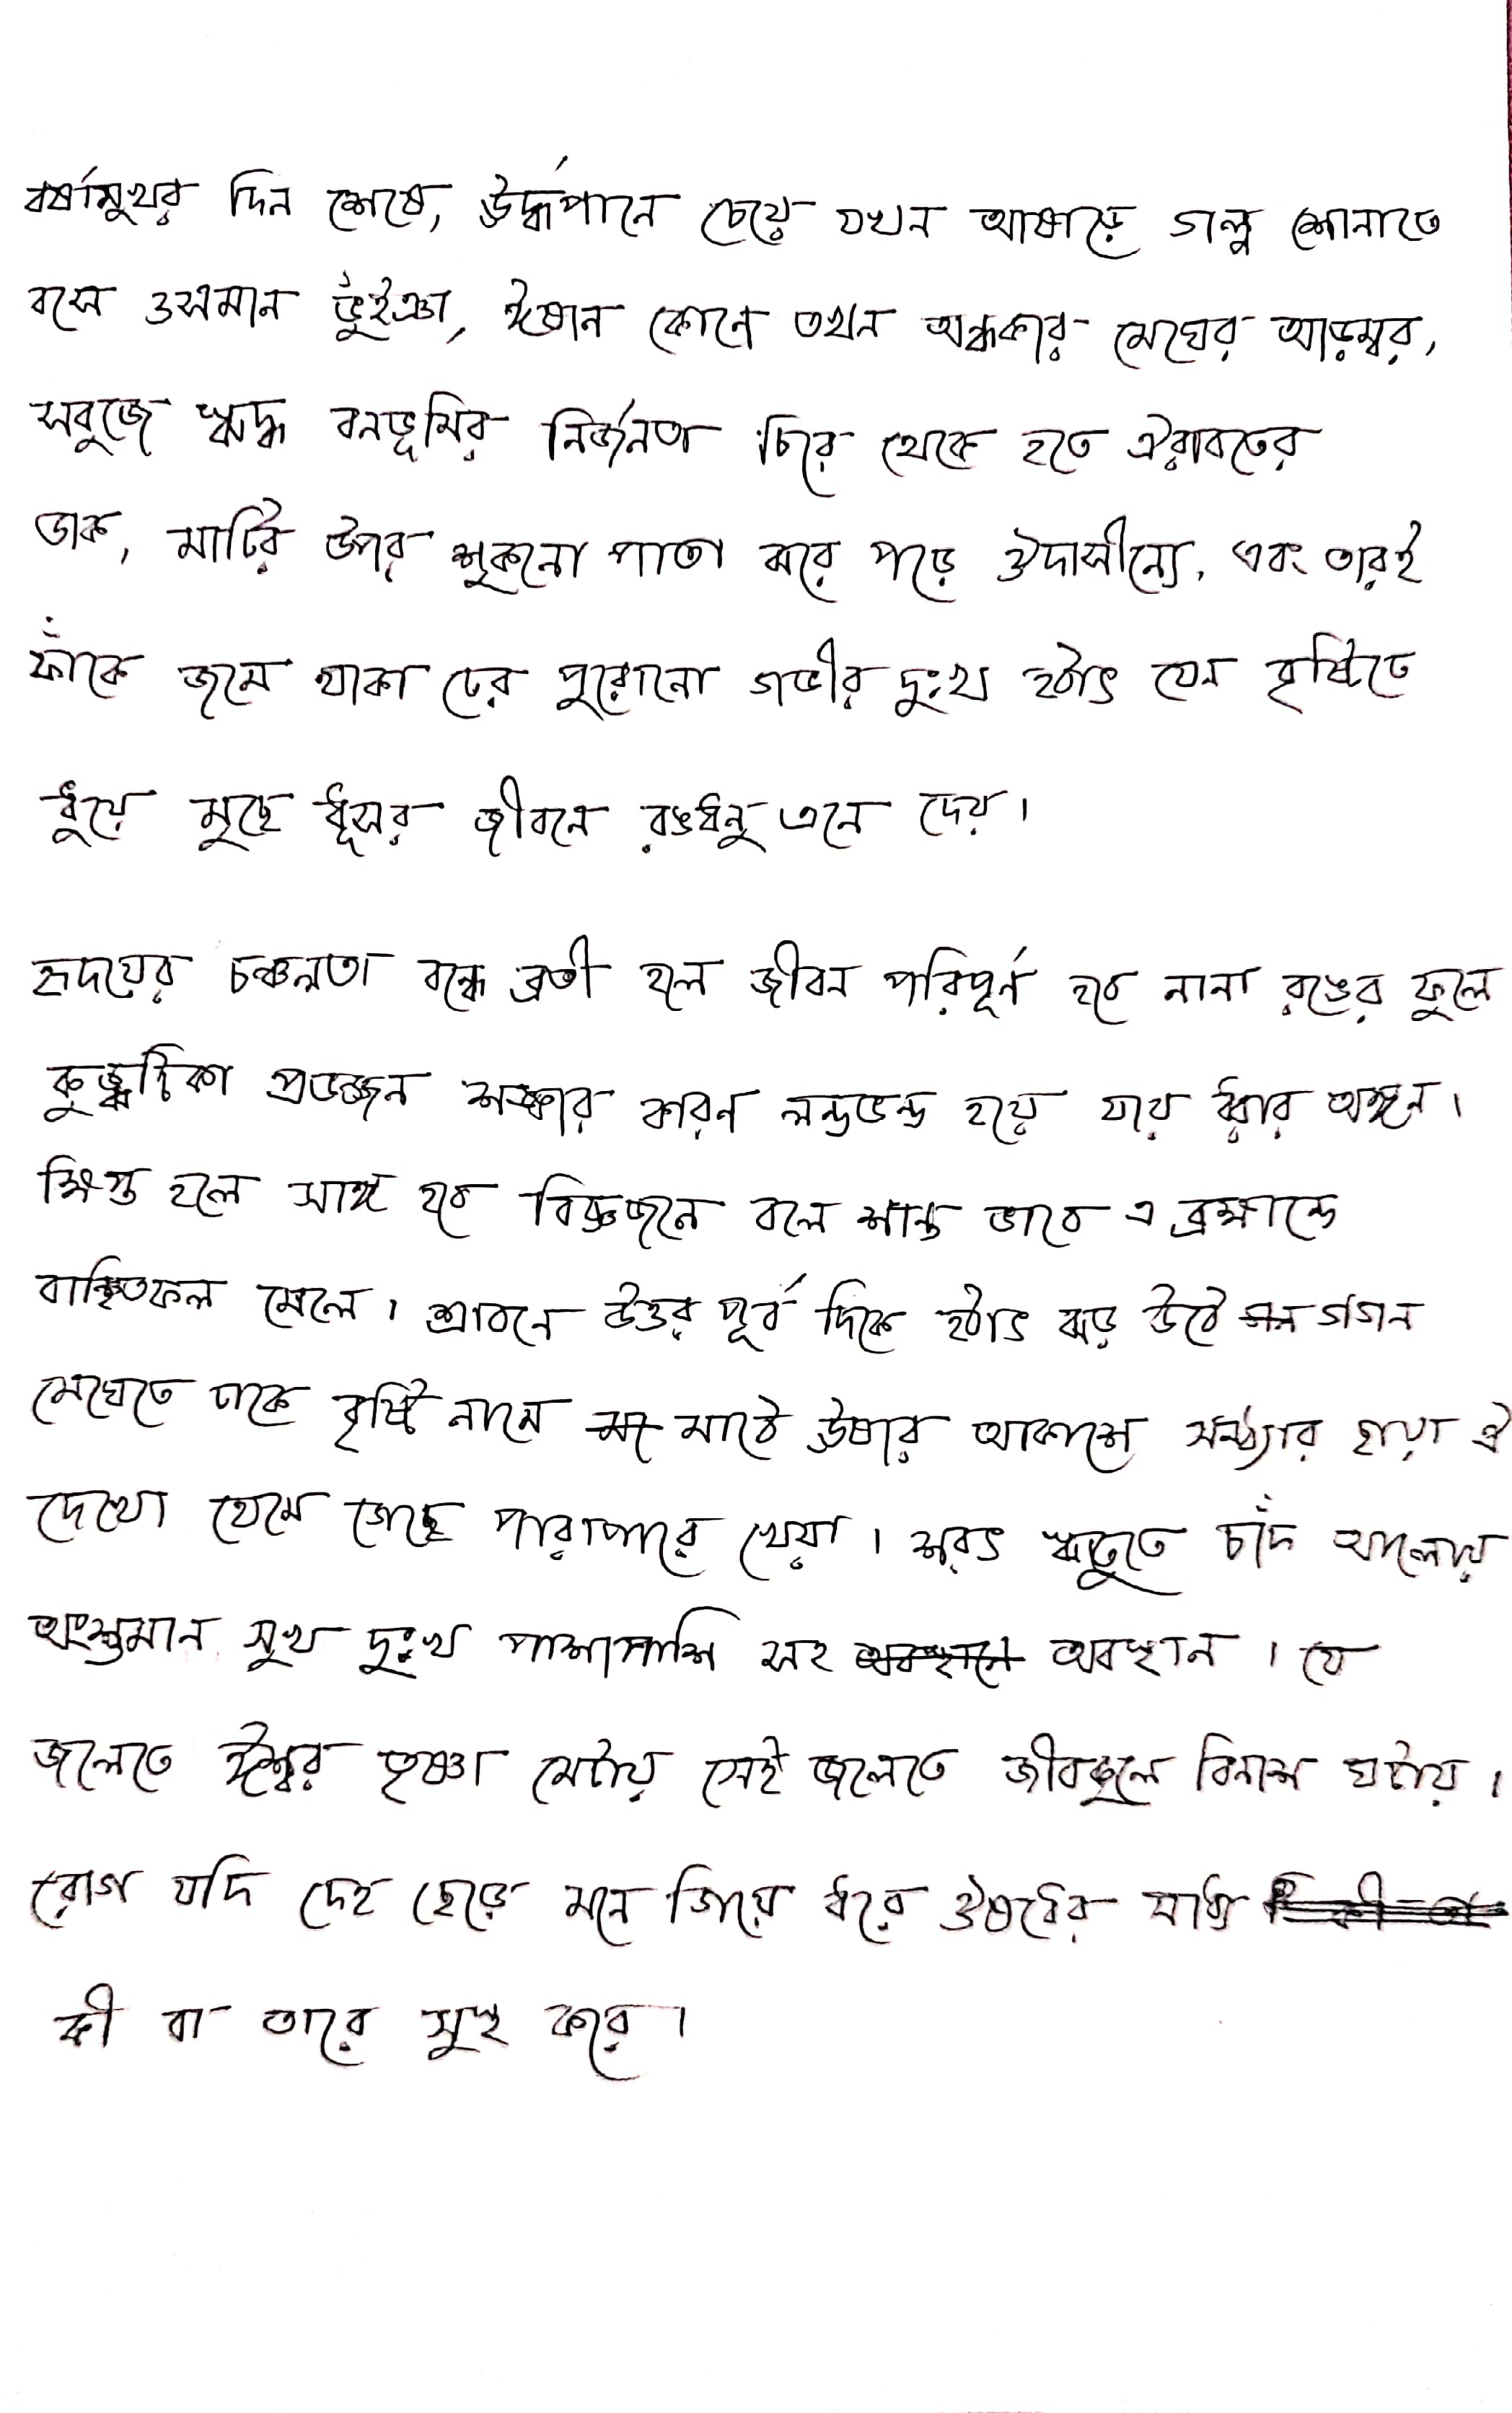 বর্ষামুখর দিন শেষে, ঊর্দ্ধপানে চেয়ে যখন আষাঢ়ে গল্প শোনাতে
বসে ওসমান ভুঁইঞা, ঈষান কোনে তখন অন্ধকার মেঘের আড়ম্বর,
সবুজে ঋদ্ধ বনভূমির নির্জনতা চিরে থেকে হতে ঐরাবতের
ডাক, মাটির উপর শুকনো পাতা ঝরে পড়ে ঔদাসীন্যে, এবং তারই
ফাঁকে জমে থাকা ঢের পুরোনো গভীর দুঃখ হঠাৎ যেন বৃষ্টিতে
ধুয়ে মুছে ধূসর জীবনে রঙধনু এনে দেয়।
হৃদয়ের চঞ্চলতা বন্ধে ব্রতী হলে জীবন পরিপূর্ন হবে নানা রঙের ফুলে
কুজ্ঝটিকা প্রভঞ্জন শঙ্কার কারণ লন্ডভন্ড হয়ে যায় ধরার অঙ্গন।
ক্ষিপ্ত হলে সাঙ্গ হবে বিজ্ঞজনে বলে শান্ত ভাবে এ ব্রহ্মান্ডে
বাঞ্ছিতফল মেলে। শ্রাবনে উত্তর পূর্ব দিকে হঠাৎ ঝড় উঠে গগন
মেঘেতে ঢাকে বৃষ্টি নামে মাঠে ঊষার আকাশে সন্ধ্যার ছায়া ঐ
দেখো থেমে গেছে পারাপারে খেয়া। শরৎ ঋতুতে চাঁদ আলোয়
অংশুমান সুখ দুঃখ পাশাপাশি সহ অবস্থান। যে
জলেতে ঈশ্বর তৃষ্ণা মেটায় সেই জলেতে জীবকুলে বিনাশ ঘটায়।
রোগ যদি দেহ ছেড়ে মনে গিয়ে ধরে ঔষধের সাধ্য
কী বা তারে সুস্থ করে।